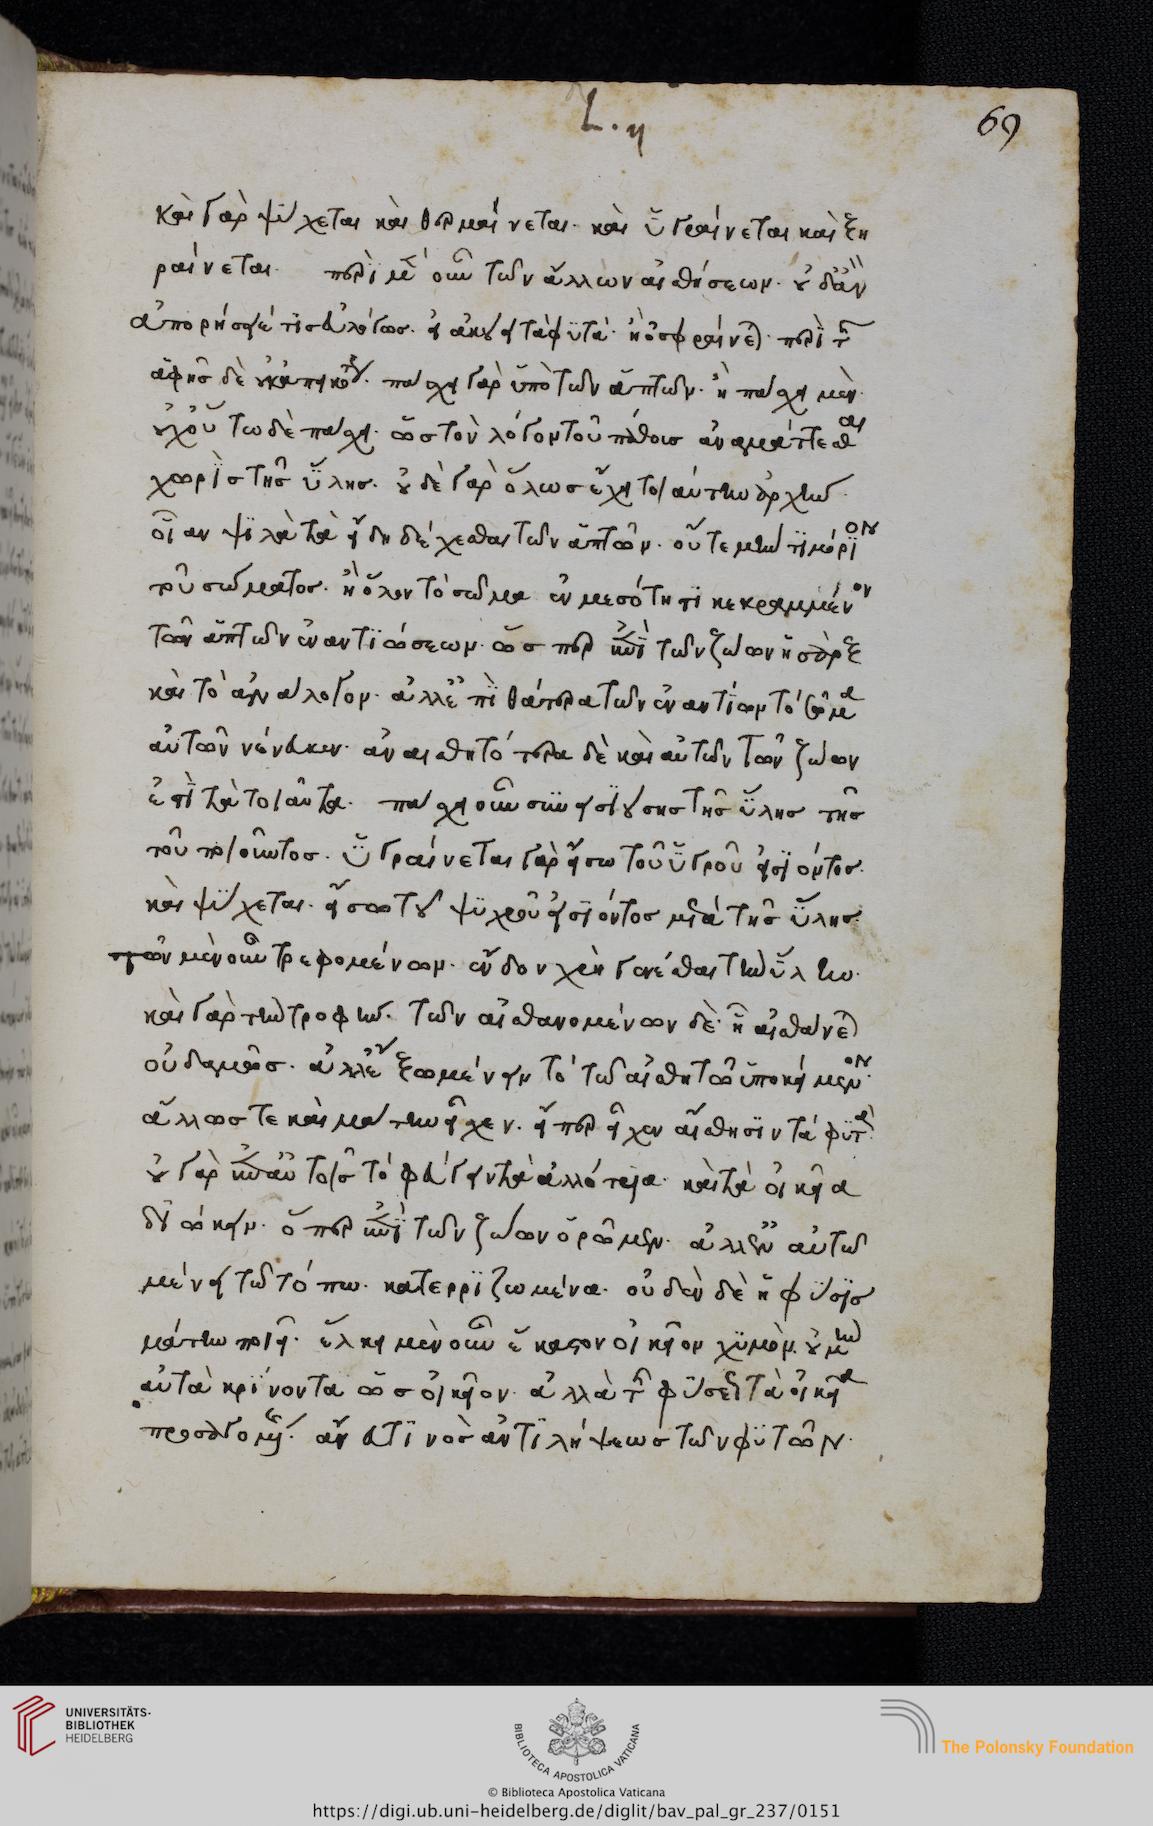 L. η
69
καὶ γὰρ ψύχεται καὶ θερμαίνεται· καὶ ὑγραίνεται καὶ ξη
ραίνεται· περὶ μὲν οὖν τῶν ἄλλων αἰσθήσεων· οὐδ' ἂν
ἀπορήσειέ τις εὐλόγως· εἰ ἀκούει τὰ φυτὰ· ἢ ὀσφραίνεται· περὶ τῆς
ἁφῆς δὲ οὐκ ἀπεικὸς· πάσχει γὰρ ὑπὸ τῶν ἁπτῶν· ἢ πάσχει μὲν·
οὐχ οὕτω δὲ πάσχει· ὥστε τὸν λόγον τοῦ πάθους ἀναμάττεσθαι
χωρὶς τῆς ὕλης· οὐδὲ γὰρ ὅλως ἔχει τοιαύτην ἀρχὴν·
οἵαν ψιλὰ τὰ εἴδη δέχεσθαι τῶν ἁπτῶν· οὔτε μὴν τὶ μόριον
τοῦ σώματος· ἢ ὅλον τὸ σῶμα ἐν μεσότητι κεκραμμένον
τῶν ἁπτῶν ἐναντιώσεων· ὥσπερ ἐπὶ τῶν ζώων ἡ σὰρξ
καὶ τὸ ἀνάλογον· ἀλλ' ἐπὶ θάτερα τῶν ἐναντίων τὸ σῶμα
αὐτῶν νένευκεν· ἀναισθητότερα δὲ καὶ αὐτῶν τῶν ζώων
ἐπὶ τὰ τοιαῦτα· πάσχει οὖν συνεισιούσης τῆς ὕλης τῆς
τοῦ ποιοῦντος· ὑγραίνεται γὰρ εἴσω τοῦ ὑγροῦ εἰσιόντος·
καὶ ψύχεται· εἴσω τοῦ ψυχροῦ εἰσιόντος μετὰ τῆς ὕλης·
τῶν μὲν οὖν τρεφομένων· ἔνδον χρὴ γενέσθαι τὴν ὕλην·
καὶ γὰρ τὴν τροφὴν· τῶν αἰσθανομένων δὲ· ᾗ αἰσθάνεται
οὐδαμῶς· ἀλλ' ἔξω μένειν τὸ τῷ αἰσθητῷ ὑποκείμενον·
ἄλλως τε καὶ μάτην εἶχεν· εἴπερ εἶχεν αἴσθησιν τὰ φυτὰ·
οὐ γὰρ ἐπ' αὐτοῖς τὸ φεύγειν τὰ ἀλλότρια· καὶ τὰ οἰκεῖα
διώκειν· ὅπερ ἐπὶ τῶν ζώων ὁρῶμεν· ἀλλ' ἐν αὐτῷ
μένει τῷ τόπω· κατερριζωμένα· οὐδὲν δὲ ἡ φύσις
μάτην ποιεῖ· ἕλκει μὲν οὖν ἕκαστον οἰκεῖον χυμὸν· οὐ μὴν
αὐτὰ κρίνοντα ὡς οἰκεῖον· ἀλλὰ τῆς φύσεως τὰ οἰκεῖα
προσαγομένης· ἄνευ τινὸς ἀντιλήψεως τῶν φυτῶν·
UNIVERSITÄTS-
BIBLIOTHEK
HEIDELBERG
BIBLIOTECA APOSTOLICA VATICANA
The Polonsky Foundation
© Biblioteca Apostolica Vaticana
https://digi.ub.uni-heidelberg.de/diglit/bav_pal_gr_237/0151